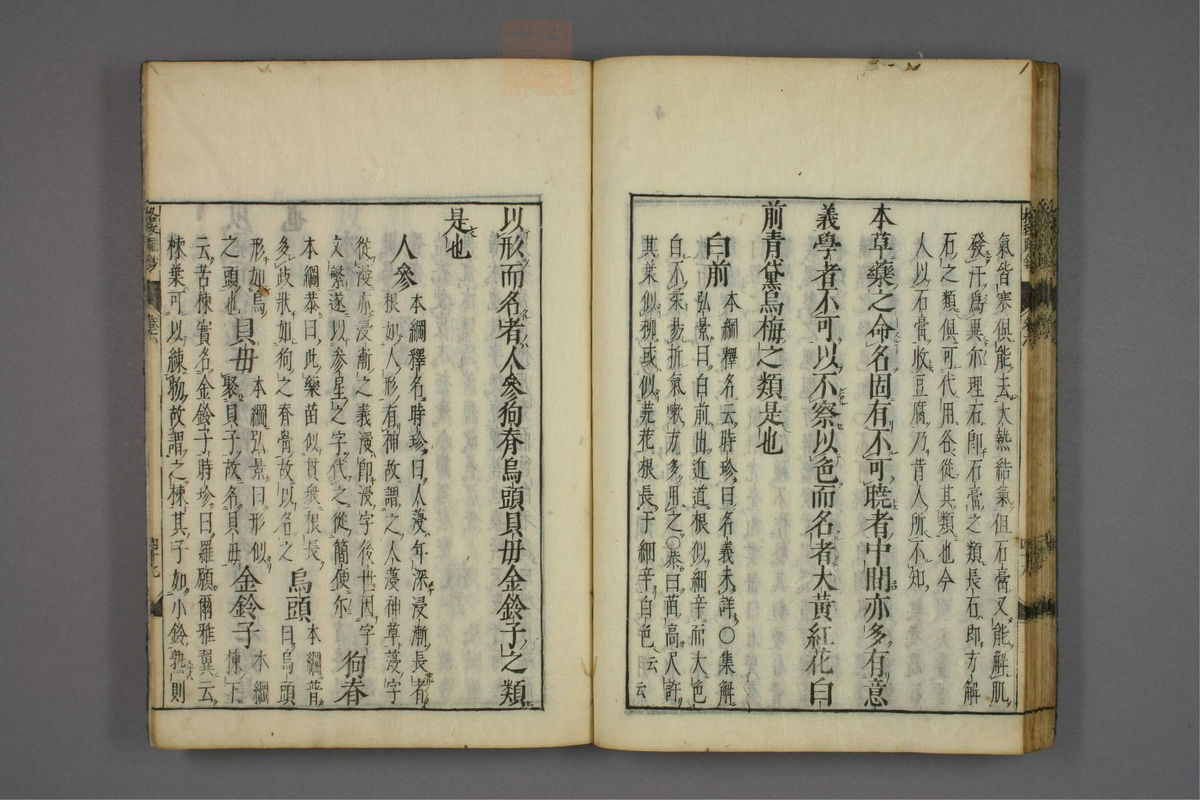 氣皆寒俱能去大熱結氣但石膏又能解肌
發汗爲異亦理石即石膏之類長石即方解
石之類俱可代用各從其類也今
人以石膏收豆腐乃昔人所不知
本草藥之命名固有不可曉者中間亦多有意
義學者不可以不察以色而名者大黃紅花白
前青黛烏梅之類是也
白前
本綱釋名云時珍曰名義未詳〇集解
弘景曰白前出近道根似細辛而大色
白不柔易折氣嗽方多用之〇恭曰苗高尺許
其葉似柳或似芫花根長于細辛白色云云
以形而名者人參狗脊烏頭貝母金鈴子之類
是也
人參
本綱釋名時珍曰人薓年深浸漸長者
根如人形有神故謂之人薓神草薓字
從薓亦浸漸之義薓即浸字後世因字
文繁遂以參星之字代之從簡便尔
狗脊
本綱恭曰此藥苗似貫衆根長
多歧狀如狗之脊骨故以名之
烏頭
本綱普
曰烏頭
形如烏
之頭也
貝母
本綱弘景曰形似
聚貝子故名貝母
金鈴子
本綱
楝下
云苦楝實名金鈴子時珍曰羅願爾雅翼云
楝葉可以練物故謂之楝其子如小鈴熟則